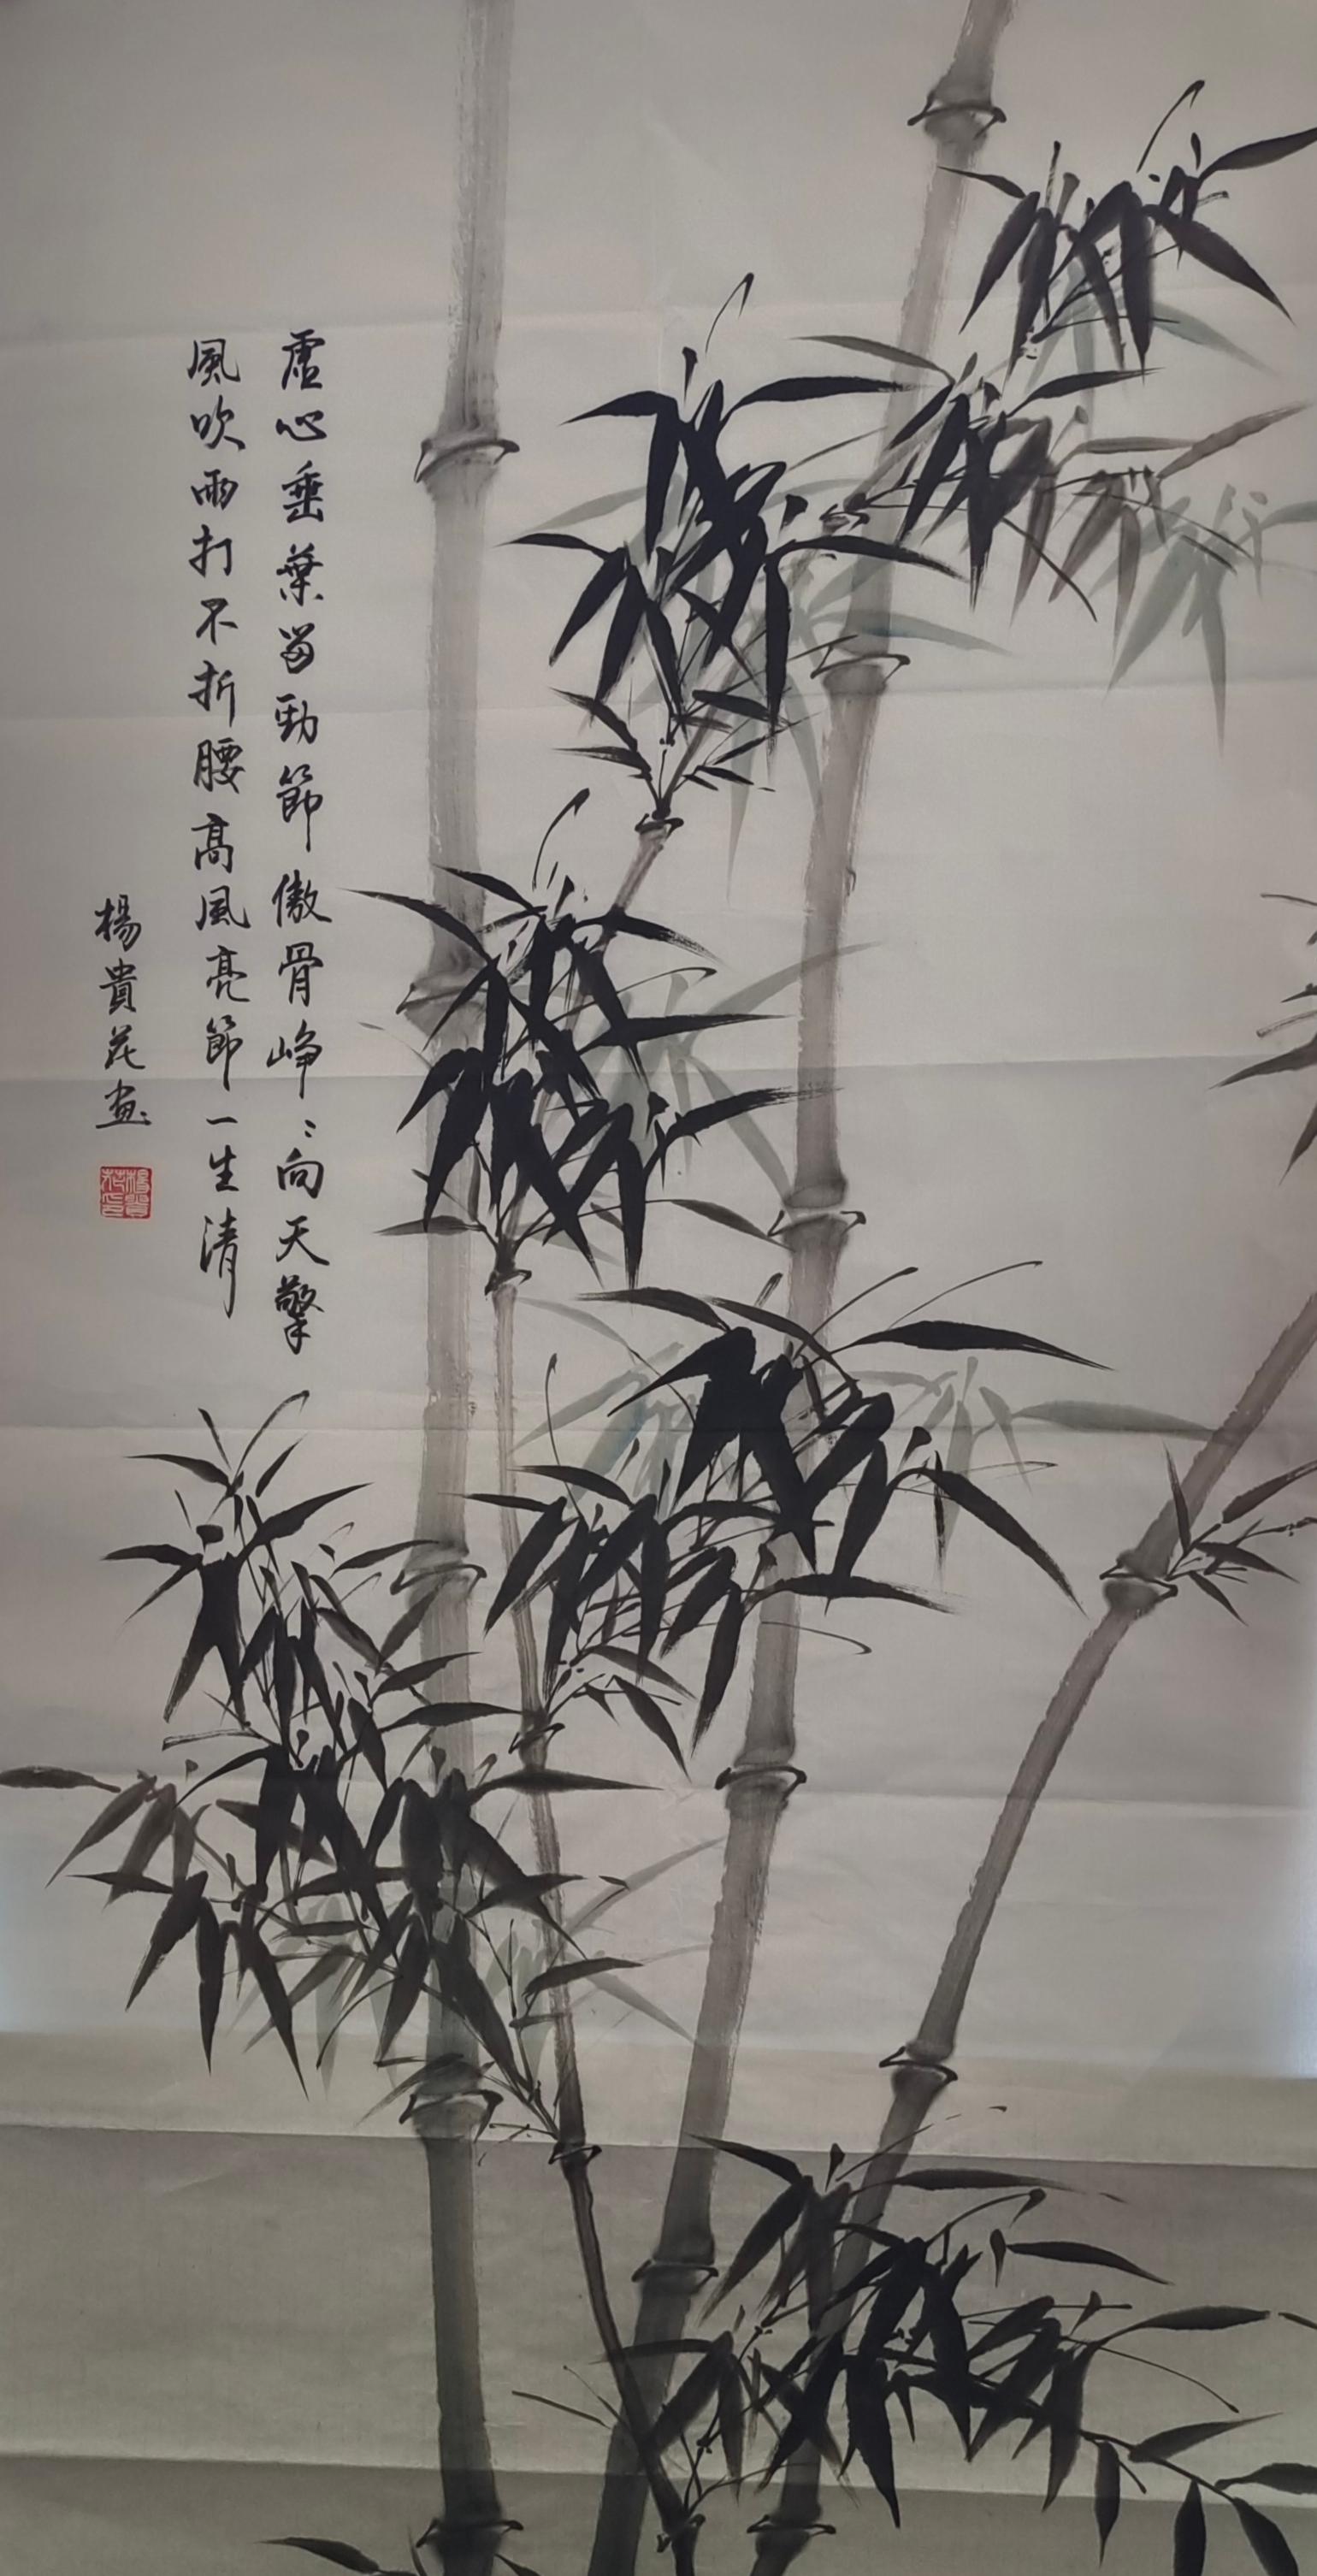 虛心垂葉留勁節傲骨峥〻向天擎
風吹雨打不折腰高風亮節一生清
楊貴花画